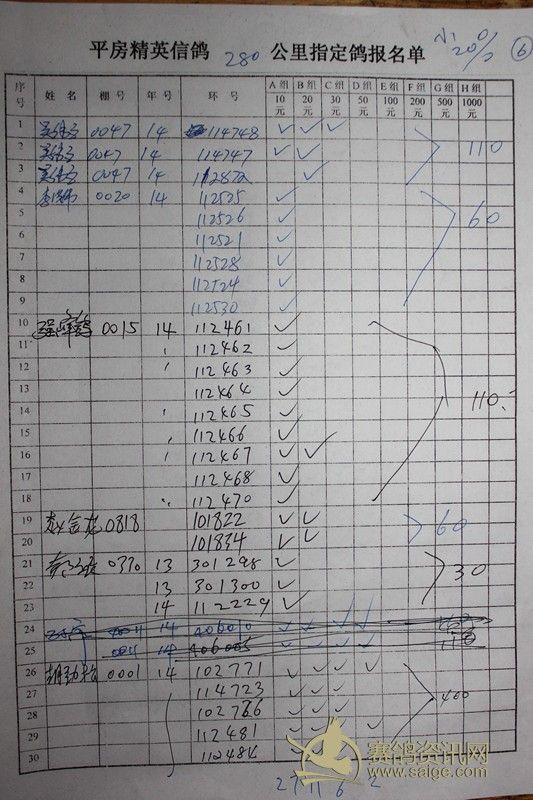 平房精英信鸽 280 公里指定鸽报名单
⑥
序号 姓名 棚号 年号 环号 A组10元 B组20元 C组30元 D组50元 E组100元 F组200元 G组500元 H组1000元
1 0047 14 114748 ✓ ✓ ✓
2 0047 14 114747 ✓ ✓ 110
3 0047 14 112872 ✓
4 0020 14 112525 ✓
5 112526 ✓ 60
6 112521 ✓
7 112528 ✓
8 112524 ✓
9 112530 ✓
10 0015 14 112461 ✓
11 112462 ✓
12 112463 ✓
13 112464 ✓ 110
14 112465 ✓
15 112466 ✓
16 112467 ✓ ✓
17 112468 ✓
18 112470 ✓
19 赵金龙 0818 101822 ✓ ✓ 60
20 101834 ✓ ✓
21 0370 13 301298 ✓ 30
22 13 301300 ✓
23 14 112229 ✓
24 14 406010 ✓ ✓ ✓ ✓
25 0011 14 406005 ✓ ✓ ✓ 110
26 0001 14 102771 ✓ ✓ ✓ ✓
27 114723 ✓ ✓ ✓ 400
28 102766 ✓ ✓ ✓
29 112481 ✓ ✓ ✓ ✓
30 ✓ ✓ ✓
27 11 6 2
赛鸽资讯网
www.saige.com